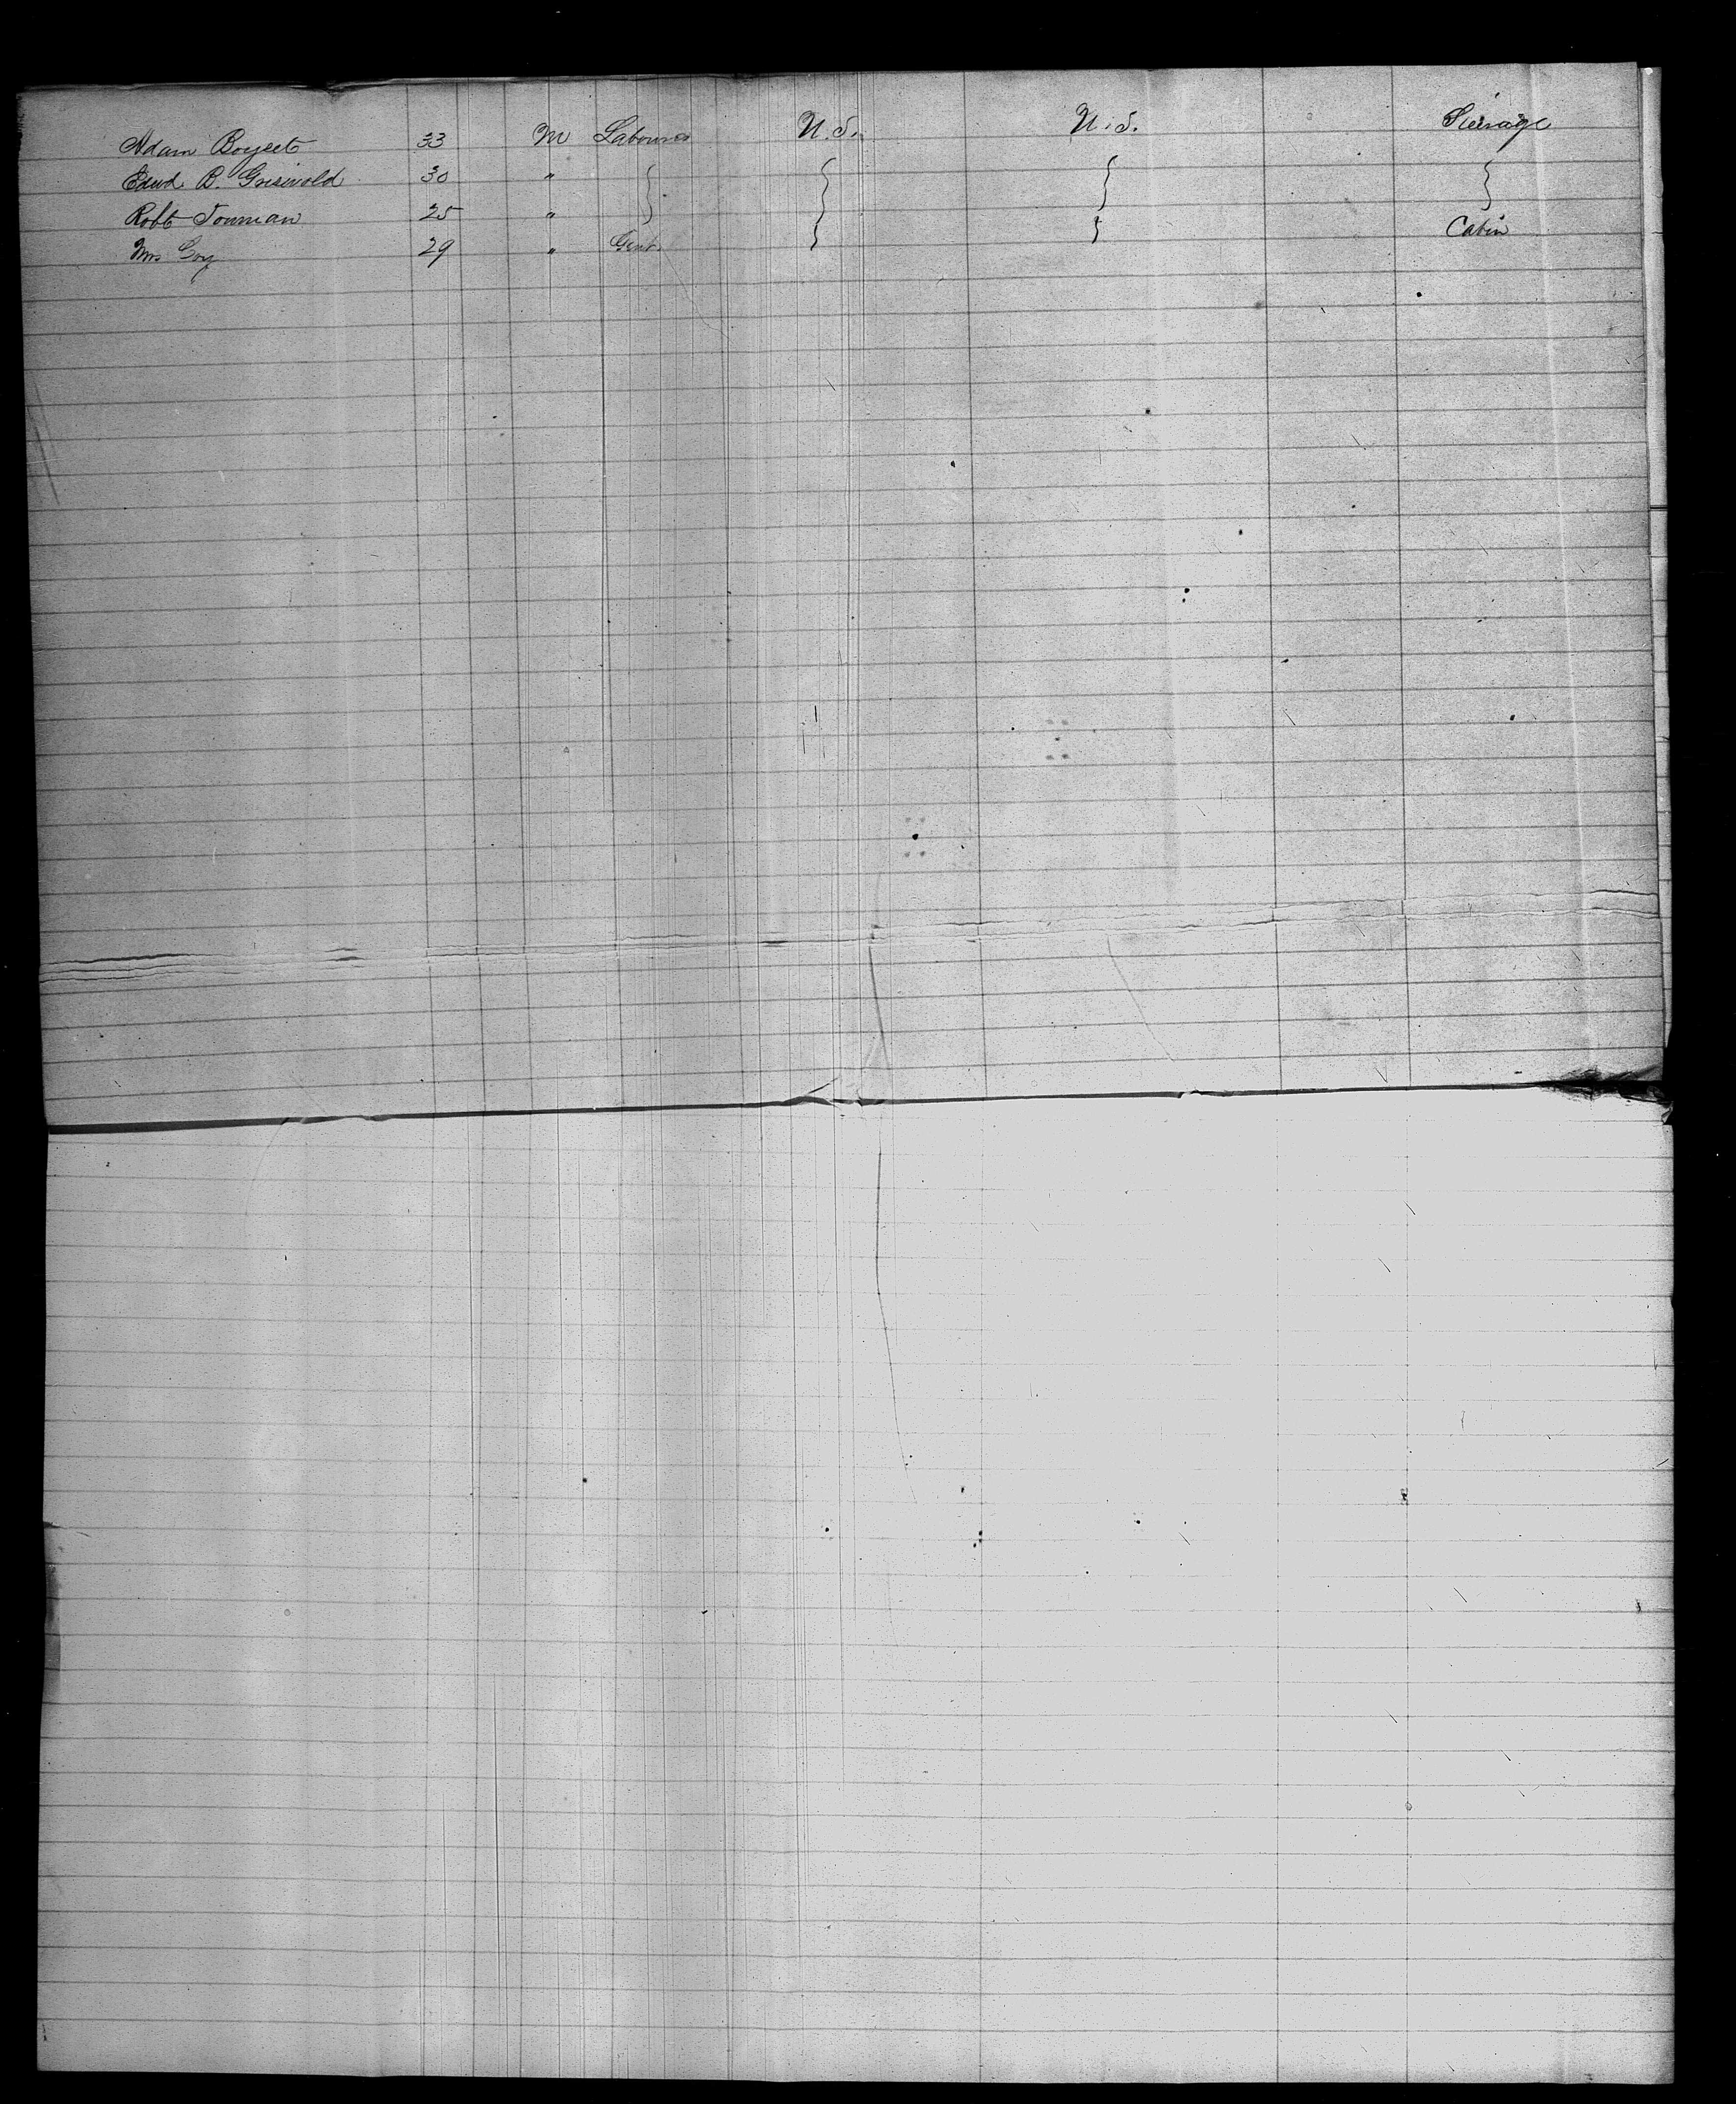 Adam Boyset 33 M Labourer U.S. U.S. Steerage
Edwd B. Griswold 30 "
Robt Touman 25 "
29 " Gent. Cabin